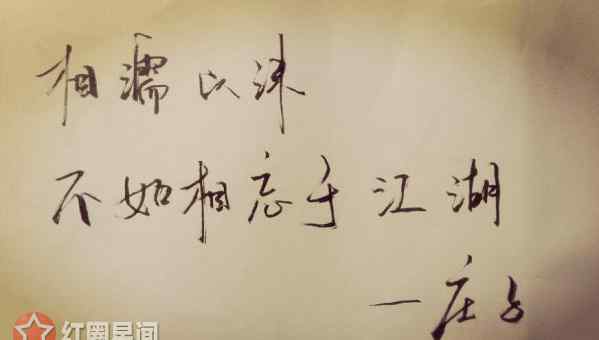 相濡以沫
不如相忘于江湖
一庄子
红星间